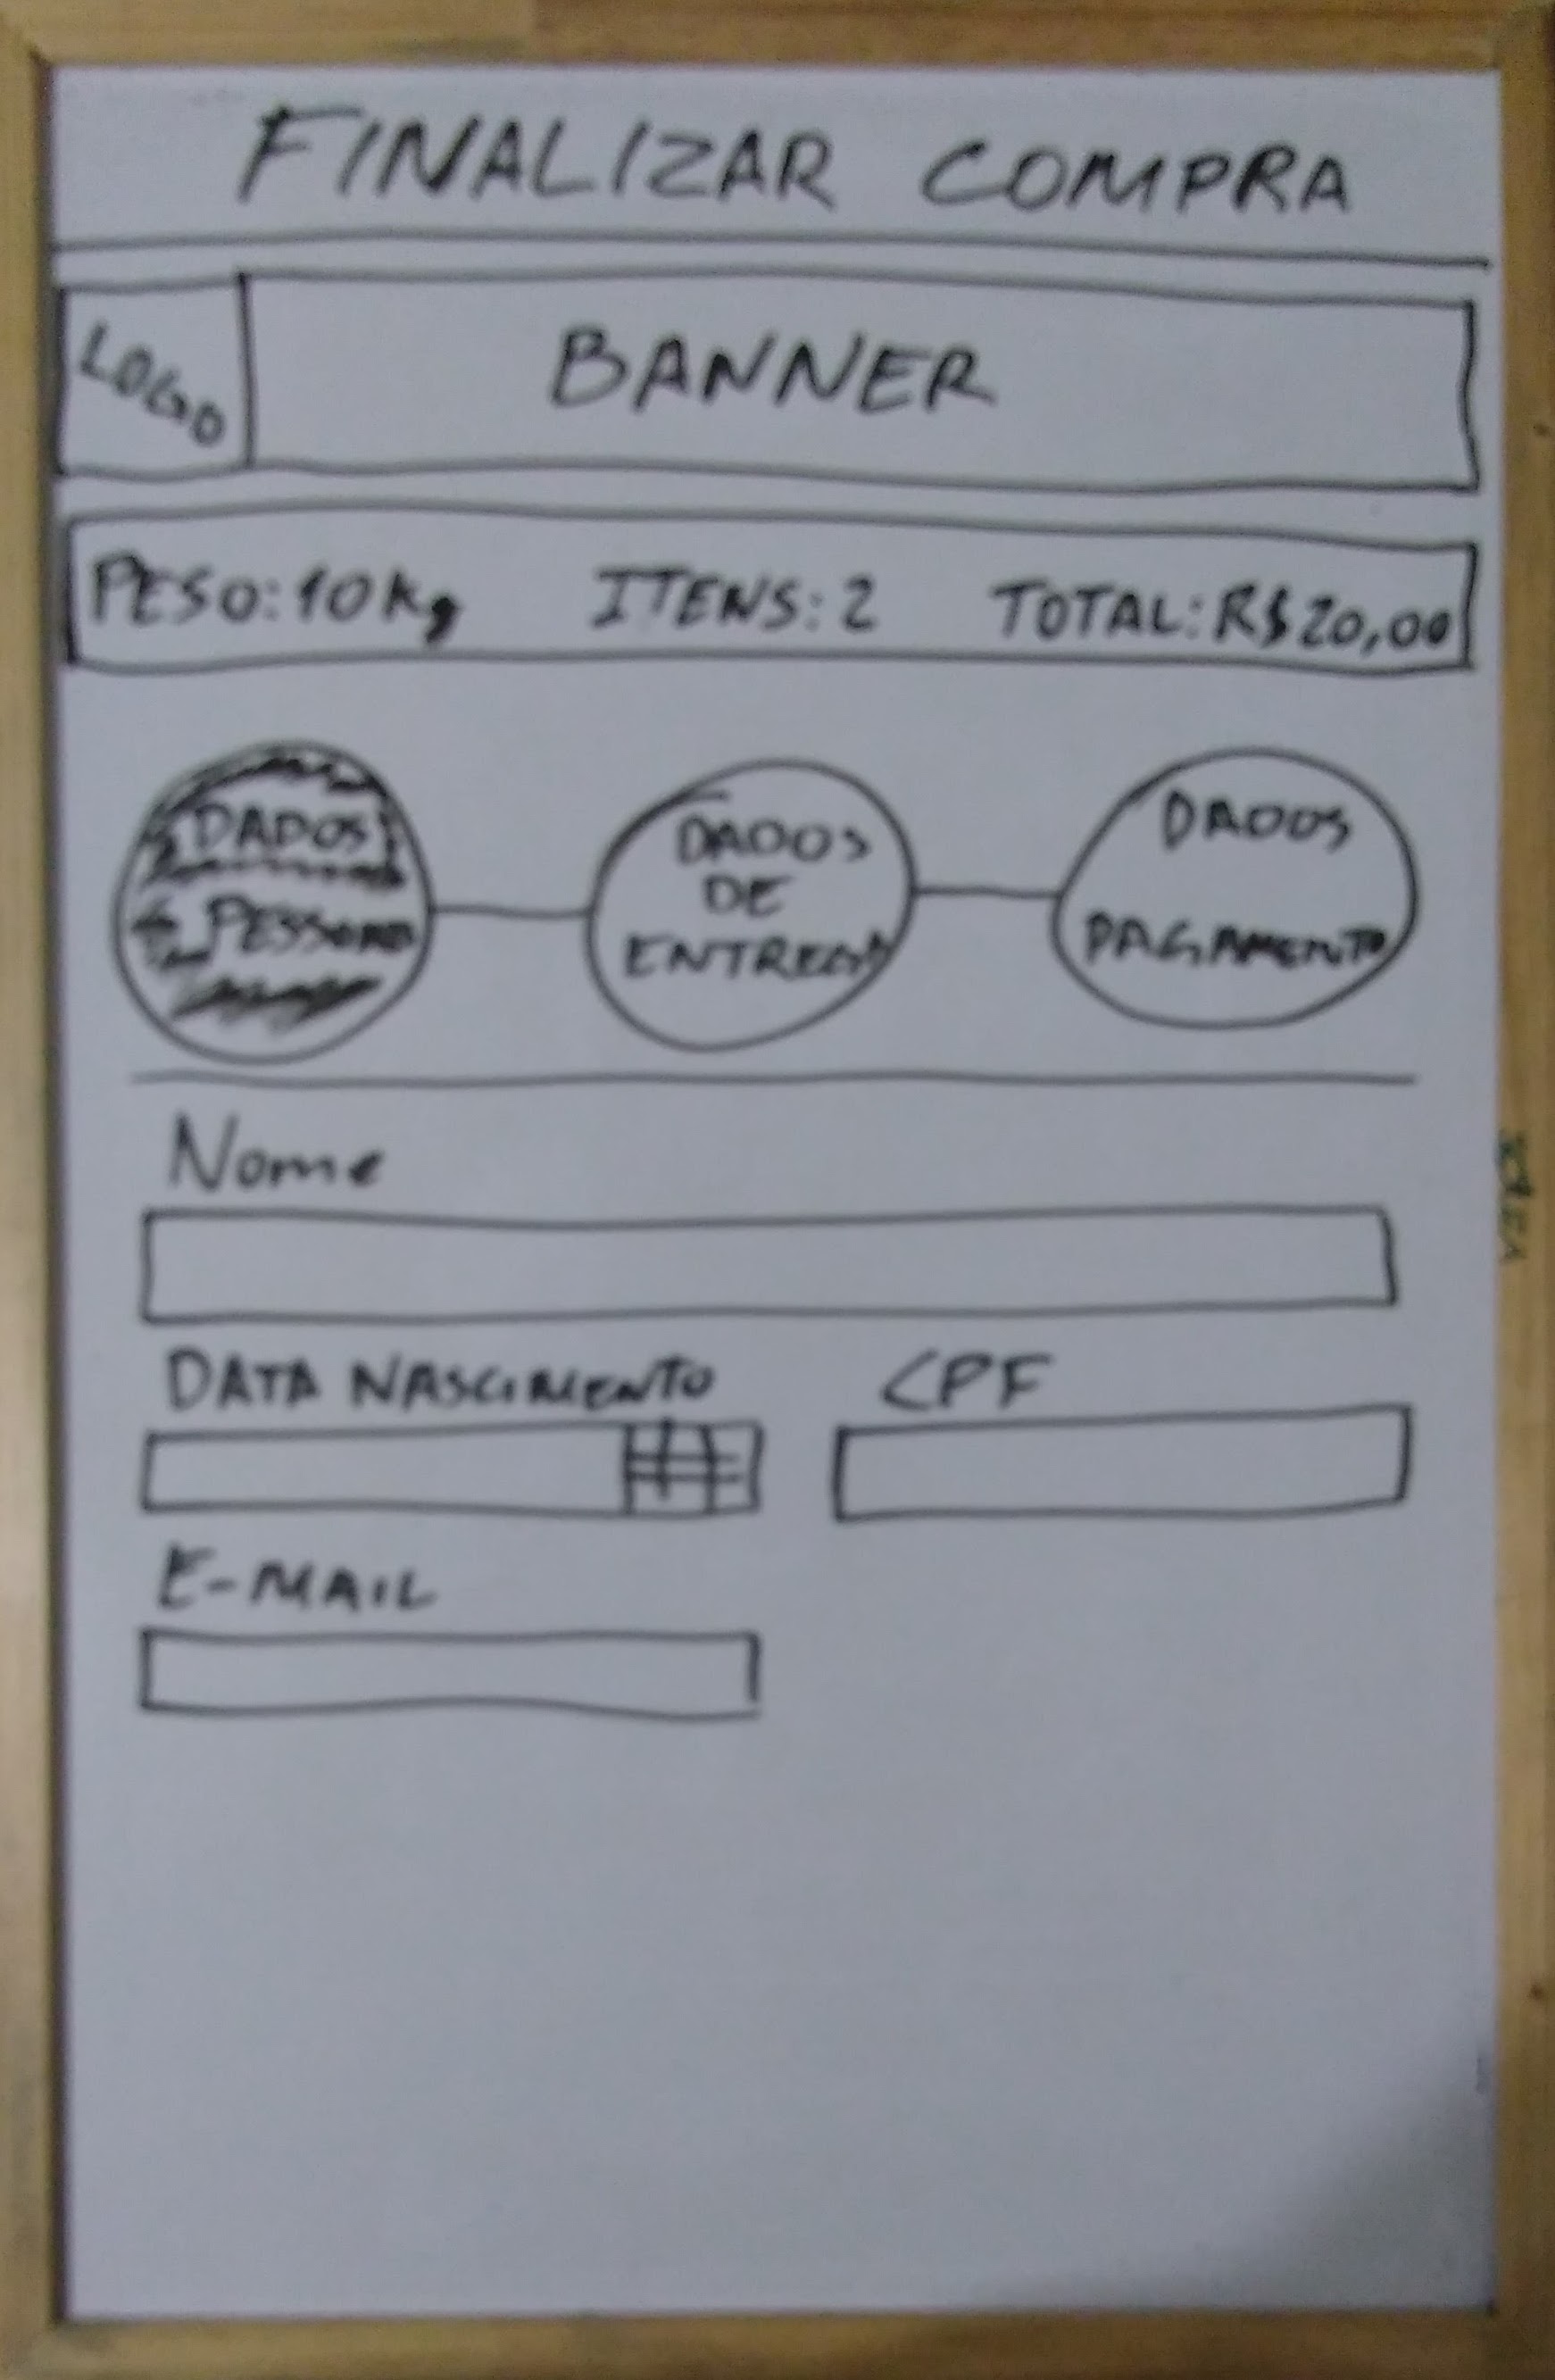 FINALIZAR COMPRA
LOGO
BANNER
PESO: 10 Kg ITENS: 2 TOTAL: R$ 20,00
DADOS
DADOS
DE
ENTREGA
DADOS
PAGAMENTO
Nome
DATA NASCIMENTO CPF
E-MAIL